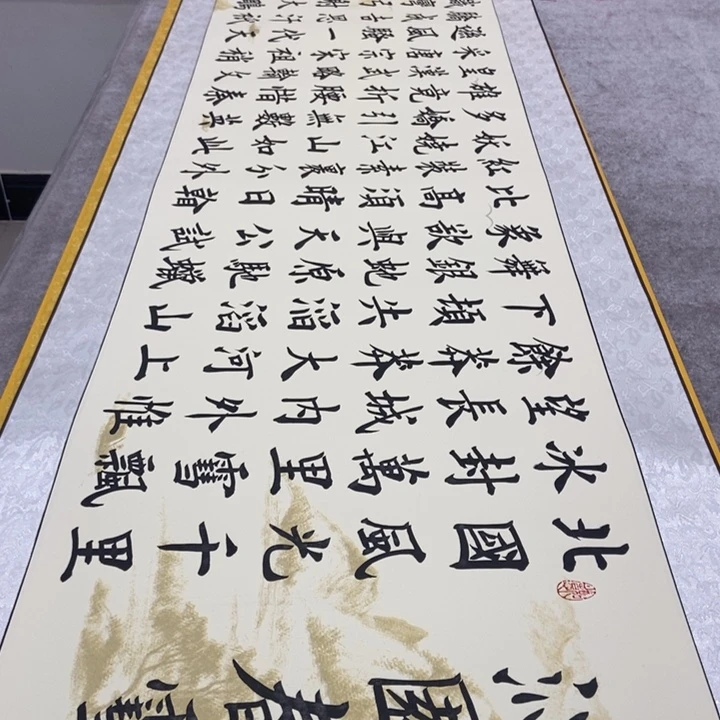 沁園春雪
北國風光千里
冰封萬里雪飄
望長城內外惟
餘莽莽大河上
下頓失滔滔山
舞銀蛇原馳蠟
象欲與天公試
比高須晴日看
紅裝素裹分外
妖嬈江山如此
多嬌引無數英
雄競折腰惜秦
皇漢武略輸文
采唐宗宋祖稍
遜風騷一代天